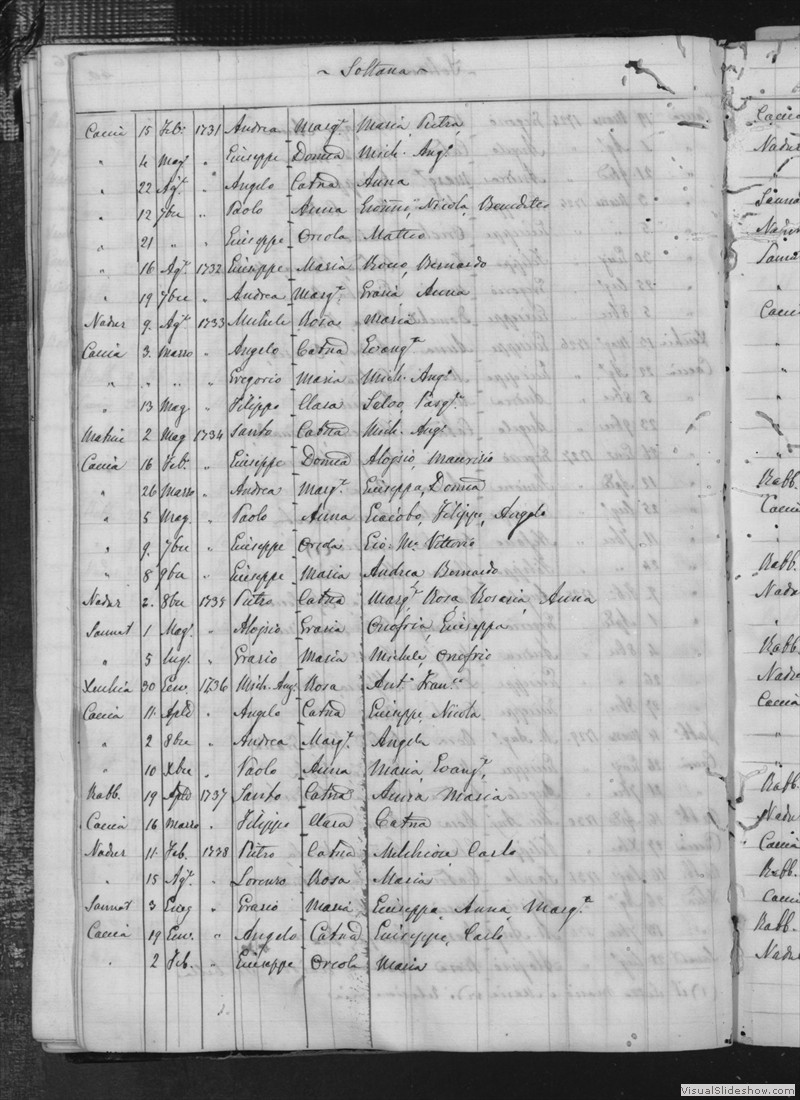 ~ Soltana ~
Caccia 15 Feb. 1731 Andrea Margt. Maria Pietra
" 4 Mag. " Giuseppe Domca Mich. Ang.
" 22 Agt. " Angelo Catna Anna
" 12 7bre " Paolo Anna Nicola, Benedetto
" 21 " " Giuseppe Orsola Matteo
" 16 Agt. 1732 Giuseppe Maria Rocco, Bernardo
" 19 7bre " Andrea Margt. Grazia Anna
Nadur 9 Agt. 1733 Michele Rosa Maria
Caccia 3 Marzo " Angelo Catna Evangta
" " " " Gregorio Maria Mich. Ang.
" 13 Mag. " Filippo Clara Pasq.
2 Mag 1734 Santo Catna Mich. Ang.
Caccia 16 Feb. " Giuseppe Domca Aloysio, Maurizio
" 26 Marzo " Andrea Margt. Giuseppa, Domca
" 5 Mag. " Paolo Anna Giacobo, Filippo, Angelo
" 9 7bre " Giuseppe Orsola Gio. M. Vittorio
" 8 9bre " Giuseppe Maria Andrea Bernardo
Nadur 2 8bre 1735 Pietro Catna Margt. Rosa Rosaria, Anna
Sannat 1 Mag. " Aloysio Grazia Onofria, Giuseppa
" 5 Lug. " Grazio Maria Michele, Onofrio
Xeuchia 30 Gen. 1736 Mich. Ang. Rosa Ant. Franco
Caccia 11 Aple " Angelo Catna Giuseppe, Nicola
" 2 8bre " Andrea Margt. Angela
" 10 Xbre " Paolo Anna Maria, Evangt.
Rabb. 19 Aple 1737 Santo Catna Anna Maria
Caccia 16 Marzo " Filippo Clara Catna
Nadur 11 Feb. 1738 Pietro Catna Melchior Carlo
" 15 Agt. " Lorenzo Rosa Maria
Sannat 3 " Grazio Maria Giuseppa, Anna, Margta
Caccia 19 Gen. " Angelo Catna Giuseppe, Carlo
" 2 Feb. " Giuseppe Orsola Maria
Caccia
Nadur
Nadur
Caccia
Rabb.
Caccia
Rabb.
Nadur
Rabb.
Nadur
Caccia
Rabb.
Nadur
Caccia
Rabb.
Caccia
Rabb.
Nadur
VisualSlideshow.com